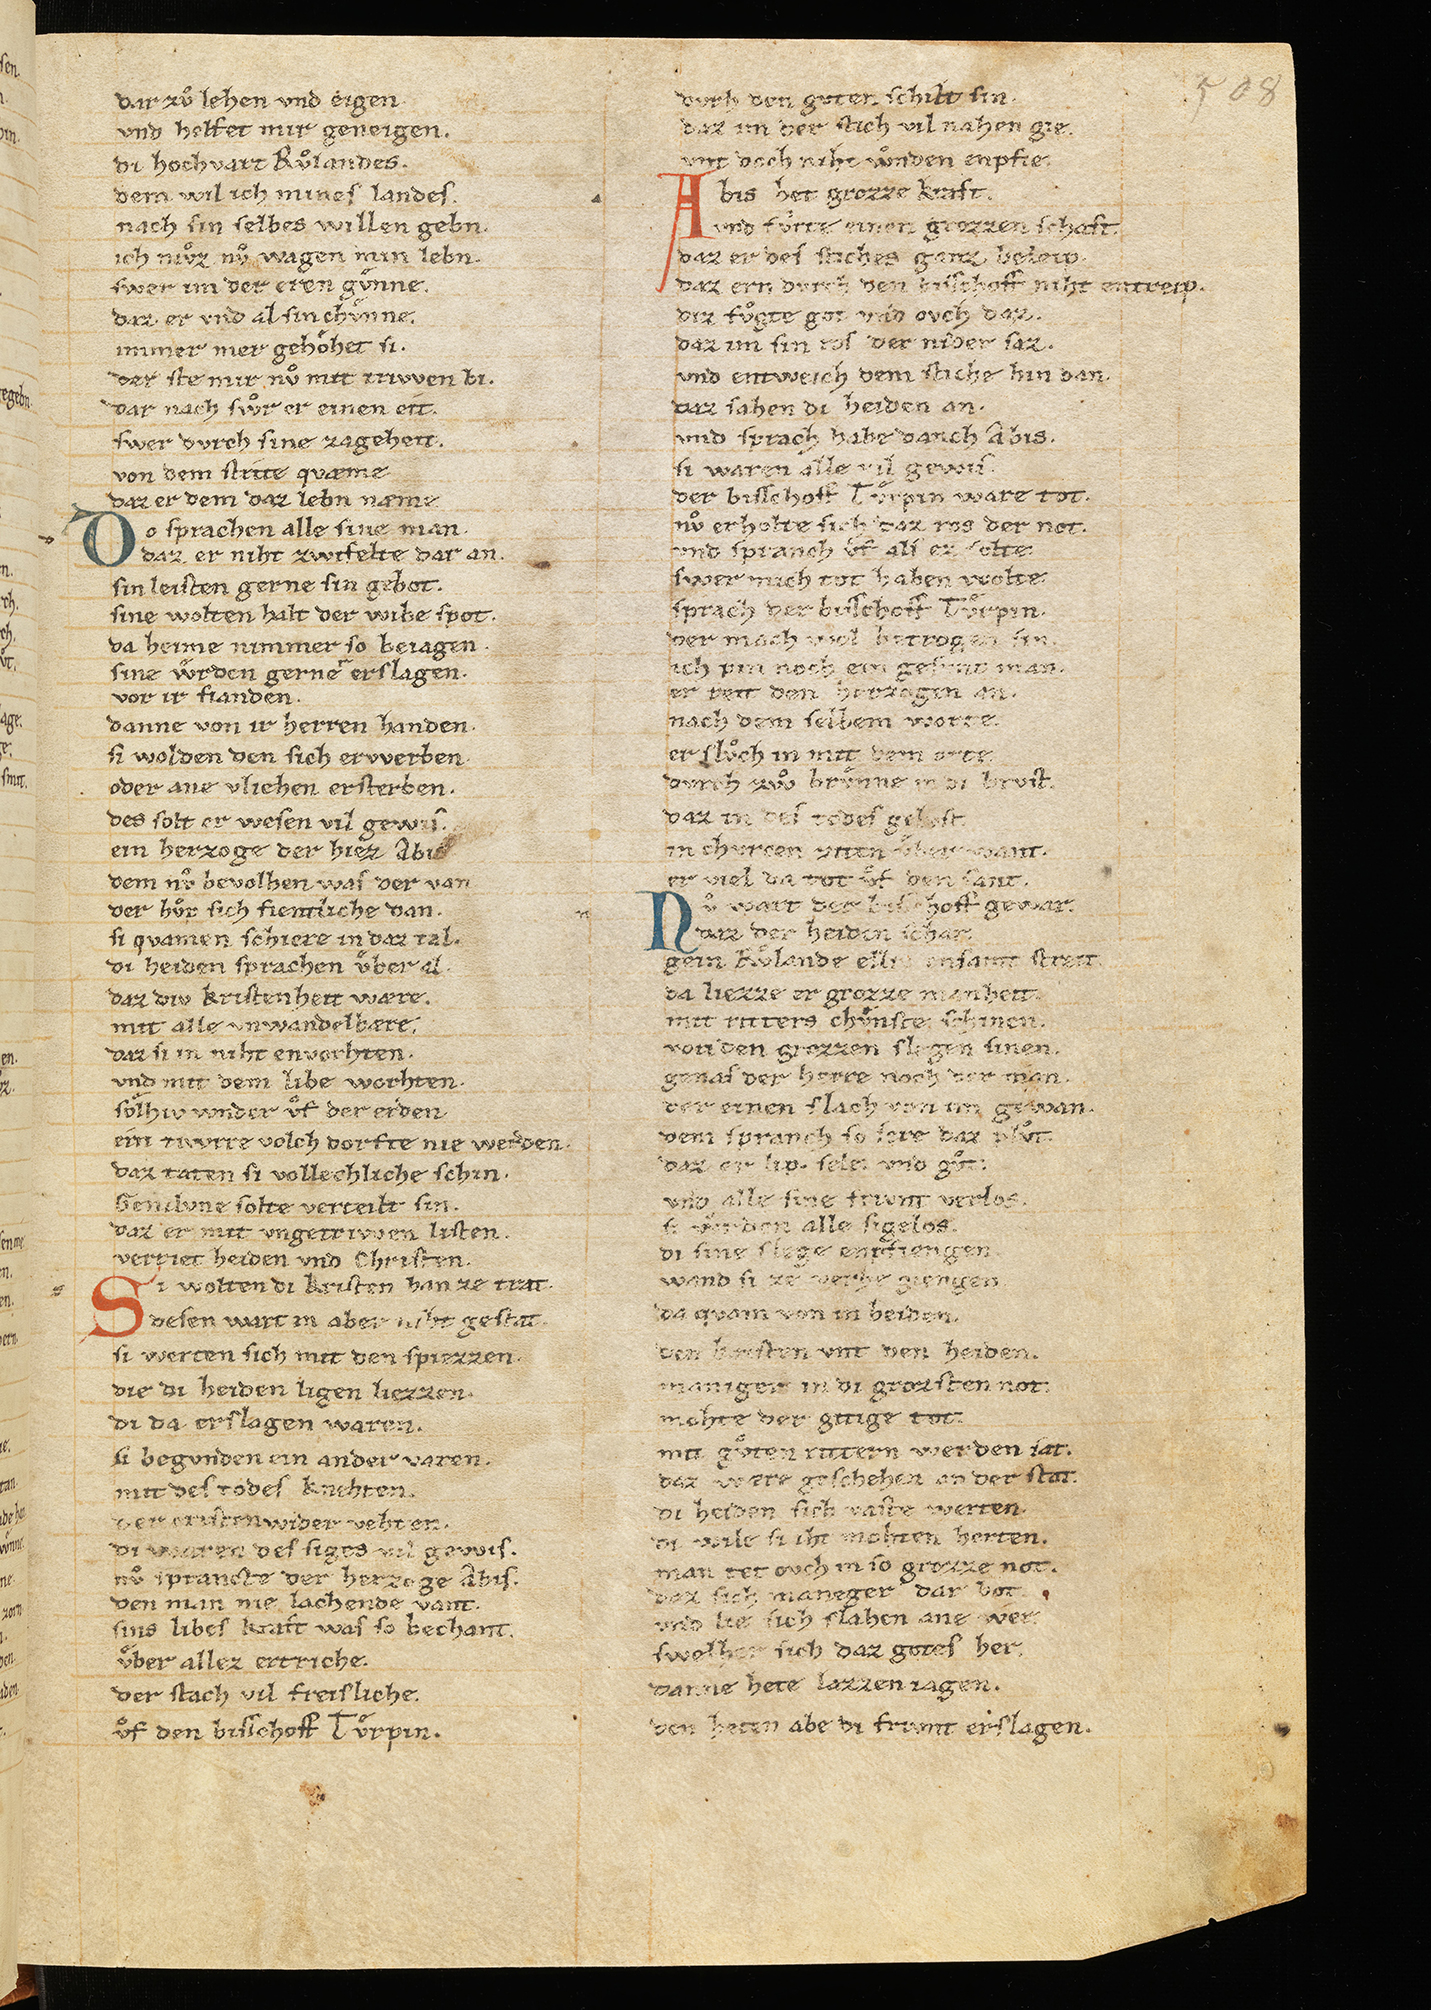 dar zuͦ lehen vnd eigen.
vnd helfet mir geneigen.
di hochvart Ruͦlandes.
dem wil ich mines landes.
nach sin selbes willen gebn.
ich muͦz nuͦ wagen min lebn.
swer im der eren guͤnne.
daz er vnd al sin chuͤnne.
immer mer gehoͤhet si.
der ste mir nuͦ mit triwen bi.
dar nach swͦr er einen eit.
swer dvrch sine zageheit.
von dem strite quæme
daz er dem daz lebn næme
Do sprachen alle sine man.
daz er niht zwifelte dar an.
sin leisten gerne sin gebot.
sine wolten halt der wibe spot.
da heime nimmer so beiagen.
sine wͤrden gerne erslagen.
vor ir fianden.
danne von ir herren handen.
si wolden den sich erwerben.
oder ane vliehen ersterben.
des solt er wesen vil gewis.
ein herzoge der hiez Abis
dem nuͦ bevolhen was der van
der huͦp sich fientliche dan.
si quamen schiere in daz tal.
di heiden sprachen vͤber al.
daz div kristenheit wære.
mit alle vnwandelbære.
daz si in niht envorhten.
vnd mit dem libe worhten.
soͤlhiv wnder vͦf der erden
ein tiwrre volch dorfte nie werden.
daz taten si vollechliche schin.
Genilvne solte verteilt sin.
daz er mit vngetriwen listen.
verriet heiden vnd Christen.
Si wolten di kristen han ze trat.
desen wart in aber niht gestat.
si werten sich mit den spiezzen.
die di heiden ligen liezzen.
di da erslagen waren.
si begvnden ein ander varen.
mit des todes knehten.
der cristen wider vehten.
di waren des siges vil gewis.
nuͦ sprancte der herzoge Abis.
den man nie lachende vant.
sins libes kraft was so bechant.
vͤber allez ertriche.
der stach vil freisliche.
vͦf den bisschoff Tuͦrpin.
dvrh den gvten schilt sin.
daz im der stich vil nahen gie.
vnt doch niht wͦnden enpfie.
Abis het grozze kraft.
vnd fuͦrte einen grozzen schaft.
daz er des stiches ganz beleip.
daz ern dvrch den bisschoff niht entreip.
diz fuͦgte got vnd ovch daz.
daz im sin ros der nider saz.
vnd entweich dem stiche hin dan.
daz sahen di heiden an.
vnd sprach habe danch Abis.
si waren alle vil gewis.
der bisschoff Tuͦrpin ware tot.
nuͦ erholte sich daz ros der not.
vnd spranch vͦf als ez solte.
swer mich tot haben wolte.
sprach der bisschoff Tuͦrpin.
der mach wol betrogen sin.
ich pin noch ein gesvnt man.
er reit den herzogen an.
nach dem selbem worte.
er sluͦch in mit dem orte.
dvrch zwͦ bruͤnne in di brvst.
daz in des todes gelvst.
in chvrcen ziten vͤber want.
er viel da tot vͦf den sant.
Nuͦ wart der bisschoff gewar.
daz der heiden schar.
gein Ruͦlande elliv ensamt streit.
da liezze er grozze manheit.
mit ritters chuͤnste schinen.
von den grozzen slegen sinen.
genas der herre noch der man.
der einen slach von im gewan.
dem spranch so sere daz pluͦt.
daz er lip. sele. vnd guͦt.
vnd alle sine frivnt verlos.
si wͤrden alle sigelos.
di sine slege enpfiengen.
wand si ze verhe giengen.
da quam von in beiden.
den kristen vnt den heiden.
maniger in di grozisten not.
mohte der gitige tot.
mit guͦten rittern werden sat.
daz wære geschehen an der stat.
di heiden sich vaste werten.
di wile si iht mohten herten.
man tet ovch in so grozze not.
daz sich maneger dar bot.
vnd lie sich slahen ane wer.
swelher sich daz gotes her.
danne hete lazzen iagen.
den heten abe di frivnt erslagen.
508